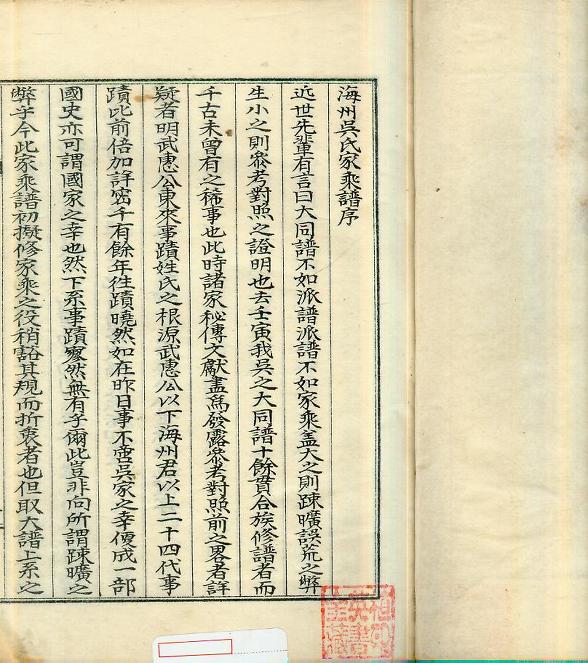 海州吳氏家乘譜序
近世先輩有言曰大同譜不如派譜派譜不如家乘盖大之則踈曠誤荒之弊
生小之則參考對照之證明也去壬寅我吳之大同譜十餘貫合族修譜者而
千古未曾有之稀事也此時諸家秘傳文獻盡爲發露參考對照前之畧者詳
疑者明武惠公東來事蹟姓氏之根源武惠公以下海州君以上二十四代事
蹟比前倍加詳密千有餘年往蹟曉然如在昨日事不啻吳家之幸便成一部
國史亦可謂國家之幸也然下系事蹟寥然無有乎爾此豈非向所謂踈曠之
弊乎今此家乘譜初擬修家乘之役稍豁其規而折衷者也但取大譜上系之